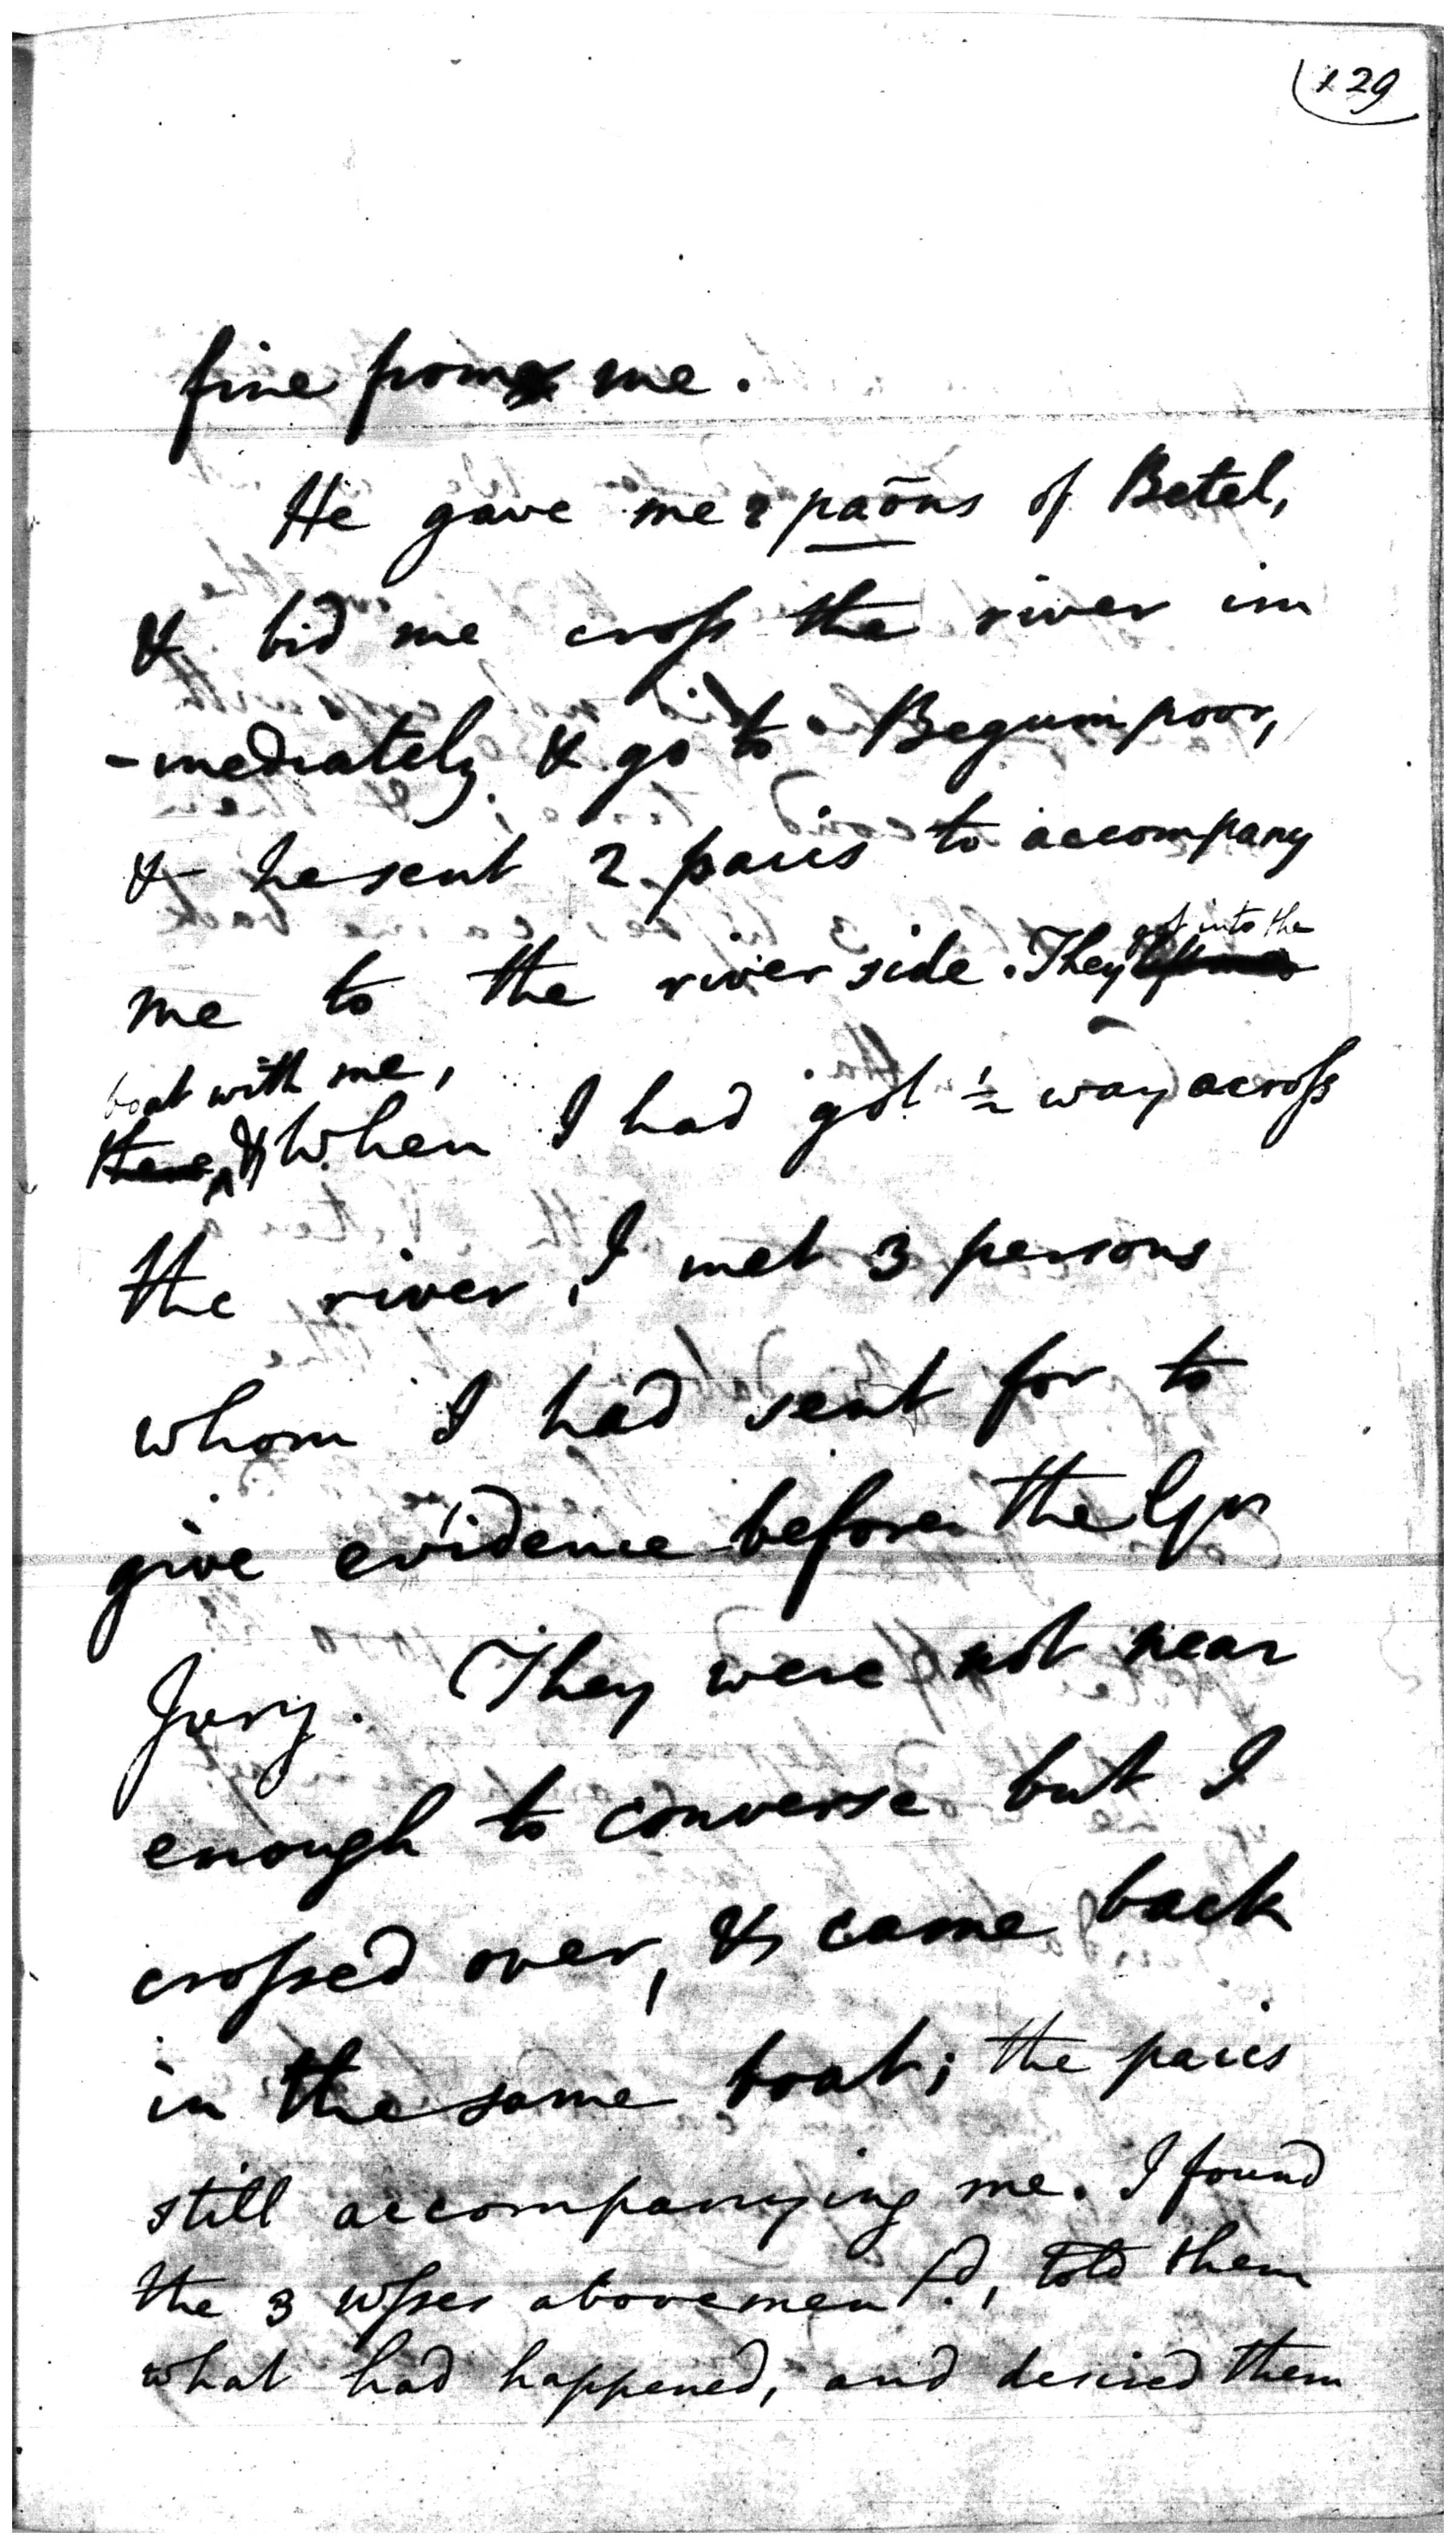 129
fine from me.
He gave me 2 paōns of Betel,
& bid me cross the river im
-mediately & go to Begumpoor,
& he sent 2 paies to accompany
got into the
me to the river side. They left me
boat with me,
there, & When I had got ½ way across
the river, I met 3 persons
whom I had sent for to
give evidence before the Gr
Jury. They were not near
enough to converse but I
crossed over, & came back
in the same boat; the paies
still accompanying me. I found
the 3 wsses abovement.d, told them
what had happened, and desired them